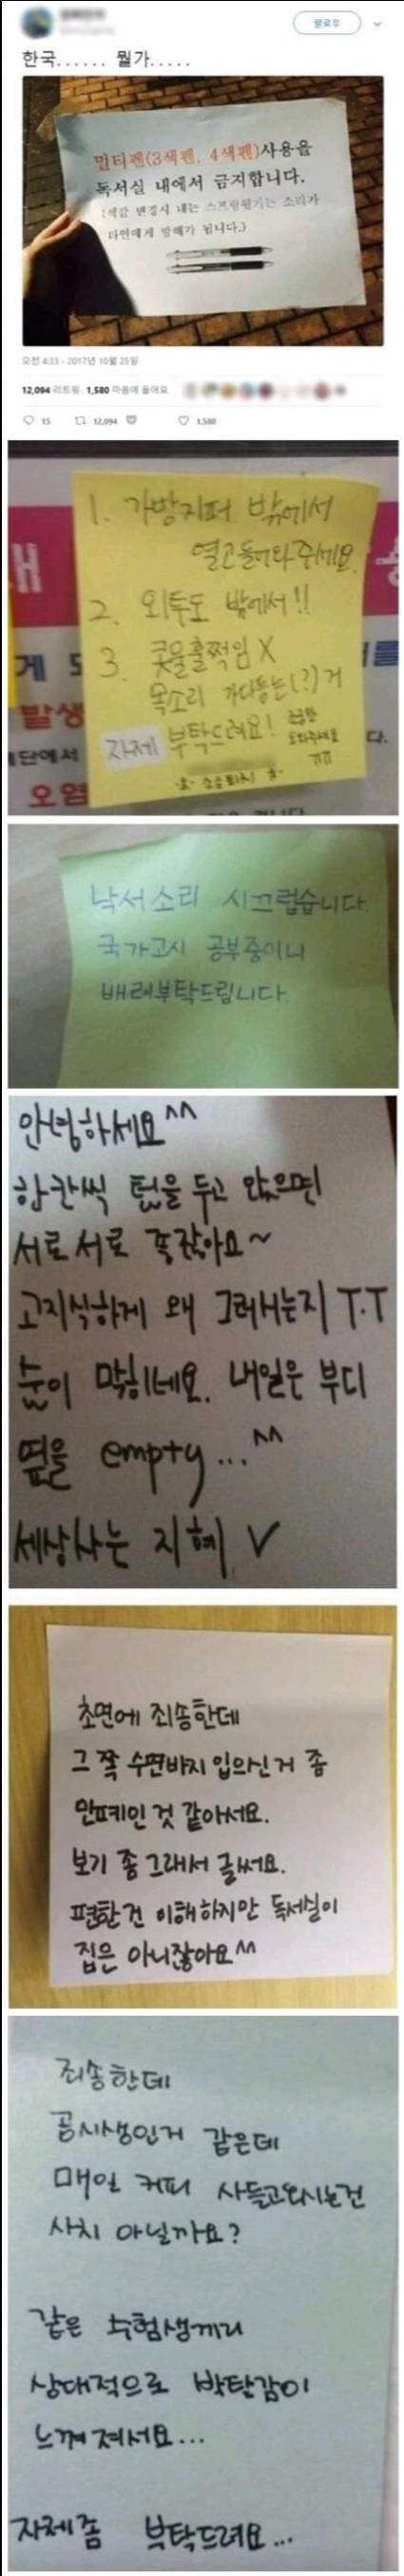 팔로우
한국...... 뭘가.....
멀티펜(3색펜, 4색펜)사용을
독서실 내에서 금지합니다.
(색깔 변경시 내는 스프링튕기는 소리가
타인에게 방해가 됩니다.)
오전 4:33 - 2017년 10월 25일
12,094 리트윗 1,580 마음에 들어요
15 12,094 1,580
1. 가방지퍼 밖에서
열고들어와주세요.
2. 외투도 밖에서!!
3. 콧물훌쩍임 X
목소리 가다듬는(?)거
자제 부탁드려요! 조금만
도와주세요
ㅠㅠ
게
발생
단에서
오염
다.
낙서소리 시끄럽습니다.
국가고시 공부중이니
배려부탁드립니다.
안녕하세요^^
한칸씩 텀을 두고 앉으면
서로서로 좋잖아요~
고지식하게 왜 그러시는지 T.T
숨이 막히네요. 내일은 부디
옆을 empty...^^
세상사는 지혜 V
초면에 죄송한데
그 쪽 수면바지 입으신거 좀
민폐인 것 같아서요.
보기 좀 그래서 글써요.
편한건 이해하지만 독서실이
집은 아니잖아요^^
죄송한데
공시생인거 같은데
매일 커피 사들고오시는건
사치 아닐까요?
같은 수험생끼리
상대적으로 박탈감이
느껴져서요...
자제좀 부탁드려요...